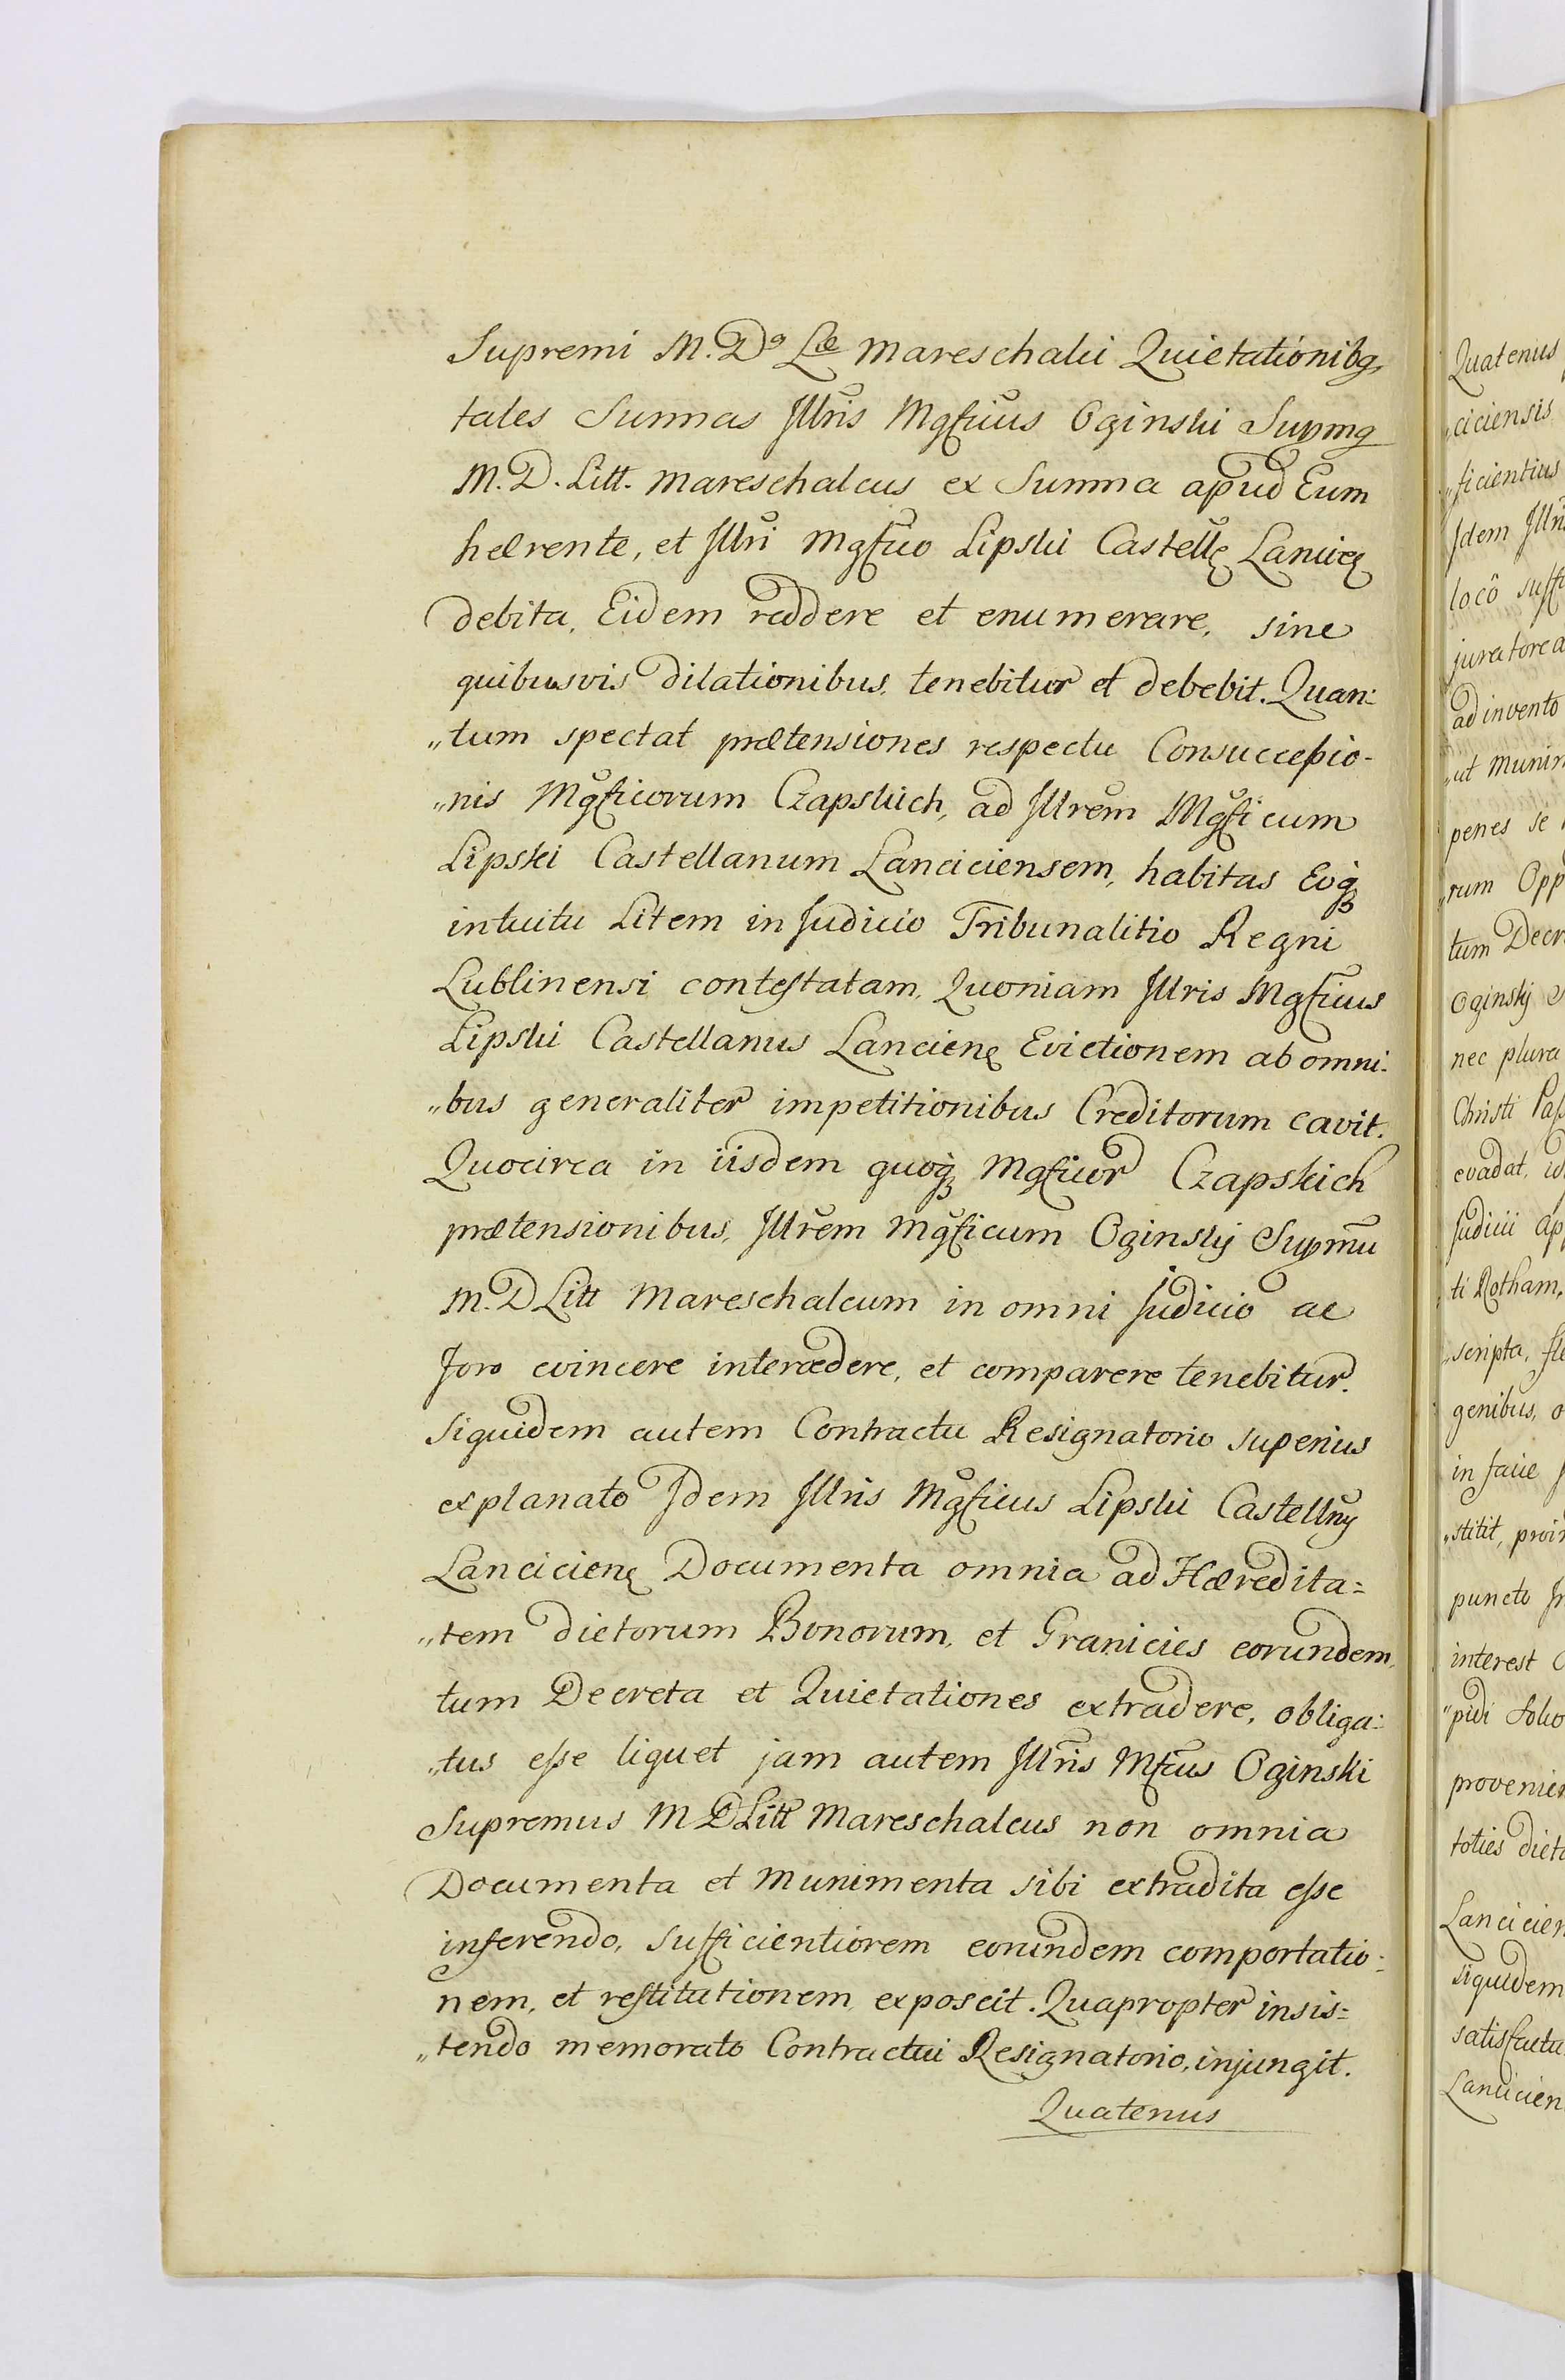 Supremi M. D. Læ Mareschalci Quietationibq
tales Summas Illris Mgficus Oginski Supmq
M. D. Litt. Mareschalcus ex Summa apud Eum
hærente, et Illri Mgfico Lipski Castellę Lancicę
debita, Eidem reddere et enumerare, sine
quibusvis dilationibus, tenebitur et debebit. Quan:
„tum spectat prætensiones respectu Consuccessio-
„nis Mgficorum Czapskich, ad Illrem Mgficum
Lipski Castellanum Lanciciensem, habitas Eoq
intuitu Litem in Judicio Tribunalitio Regni
Lublinensi contestatam, Quoniam Illris Mgficus
Lipski Castellanus Lancicienę Evictionem ab omni:
„bus generaliter impetitionibus Creditorum cavit.
Quocirca in iisdem quoq Mgficor Czapskich
prætensionibus, Illrem Mgficum Oginskij Supmu
M. D Litt Mareschalcum in omni Judicio ac
Foro evincere intercedere, et comparere tenebitur.
Siquidem autem Contractu Resignatorio superius
explanato Idem Illris Mgficus Lipski Castellnq
Lancicienę Documenta omnia ad Hæredita=
„tem dictorum Bonorum, et Granicies eorundem,
tum Decreta et Quietationes extradere, obliga:
„tus esse liquet jam autem Illris Mficus Oginski
Supremus M D Litt Mareschalcus non omnia
Documenta et Munimenta sibi extradita esse
inferendo, sufficientiorem eorundem comportatio:
nem, et restitutionem exposcit. Quapropter insis=
„tendo memorato Contractui Resignatorio, injungit.
Quatenus
Quatenus
„ciciensis
„ficientius
Idem Illris
locô suffi
juratorea
ad invento
„ut Munim
penes se
„rum Opp
tum Decr
Oginskij
nec plura
Christi Pass
evadat,
Judicii Ap
ti Rotham,
„scripta, fle
genibus, o
in facie
„stitit, proin
puncto
interest
„pidi Solio
provenien
toties dict
Lancicien
siquidem
satisfactu
Lancicien